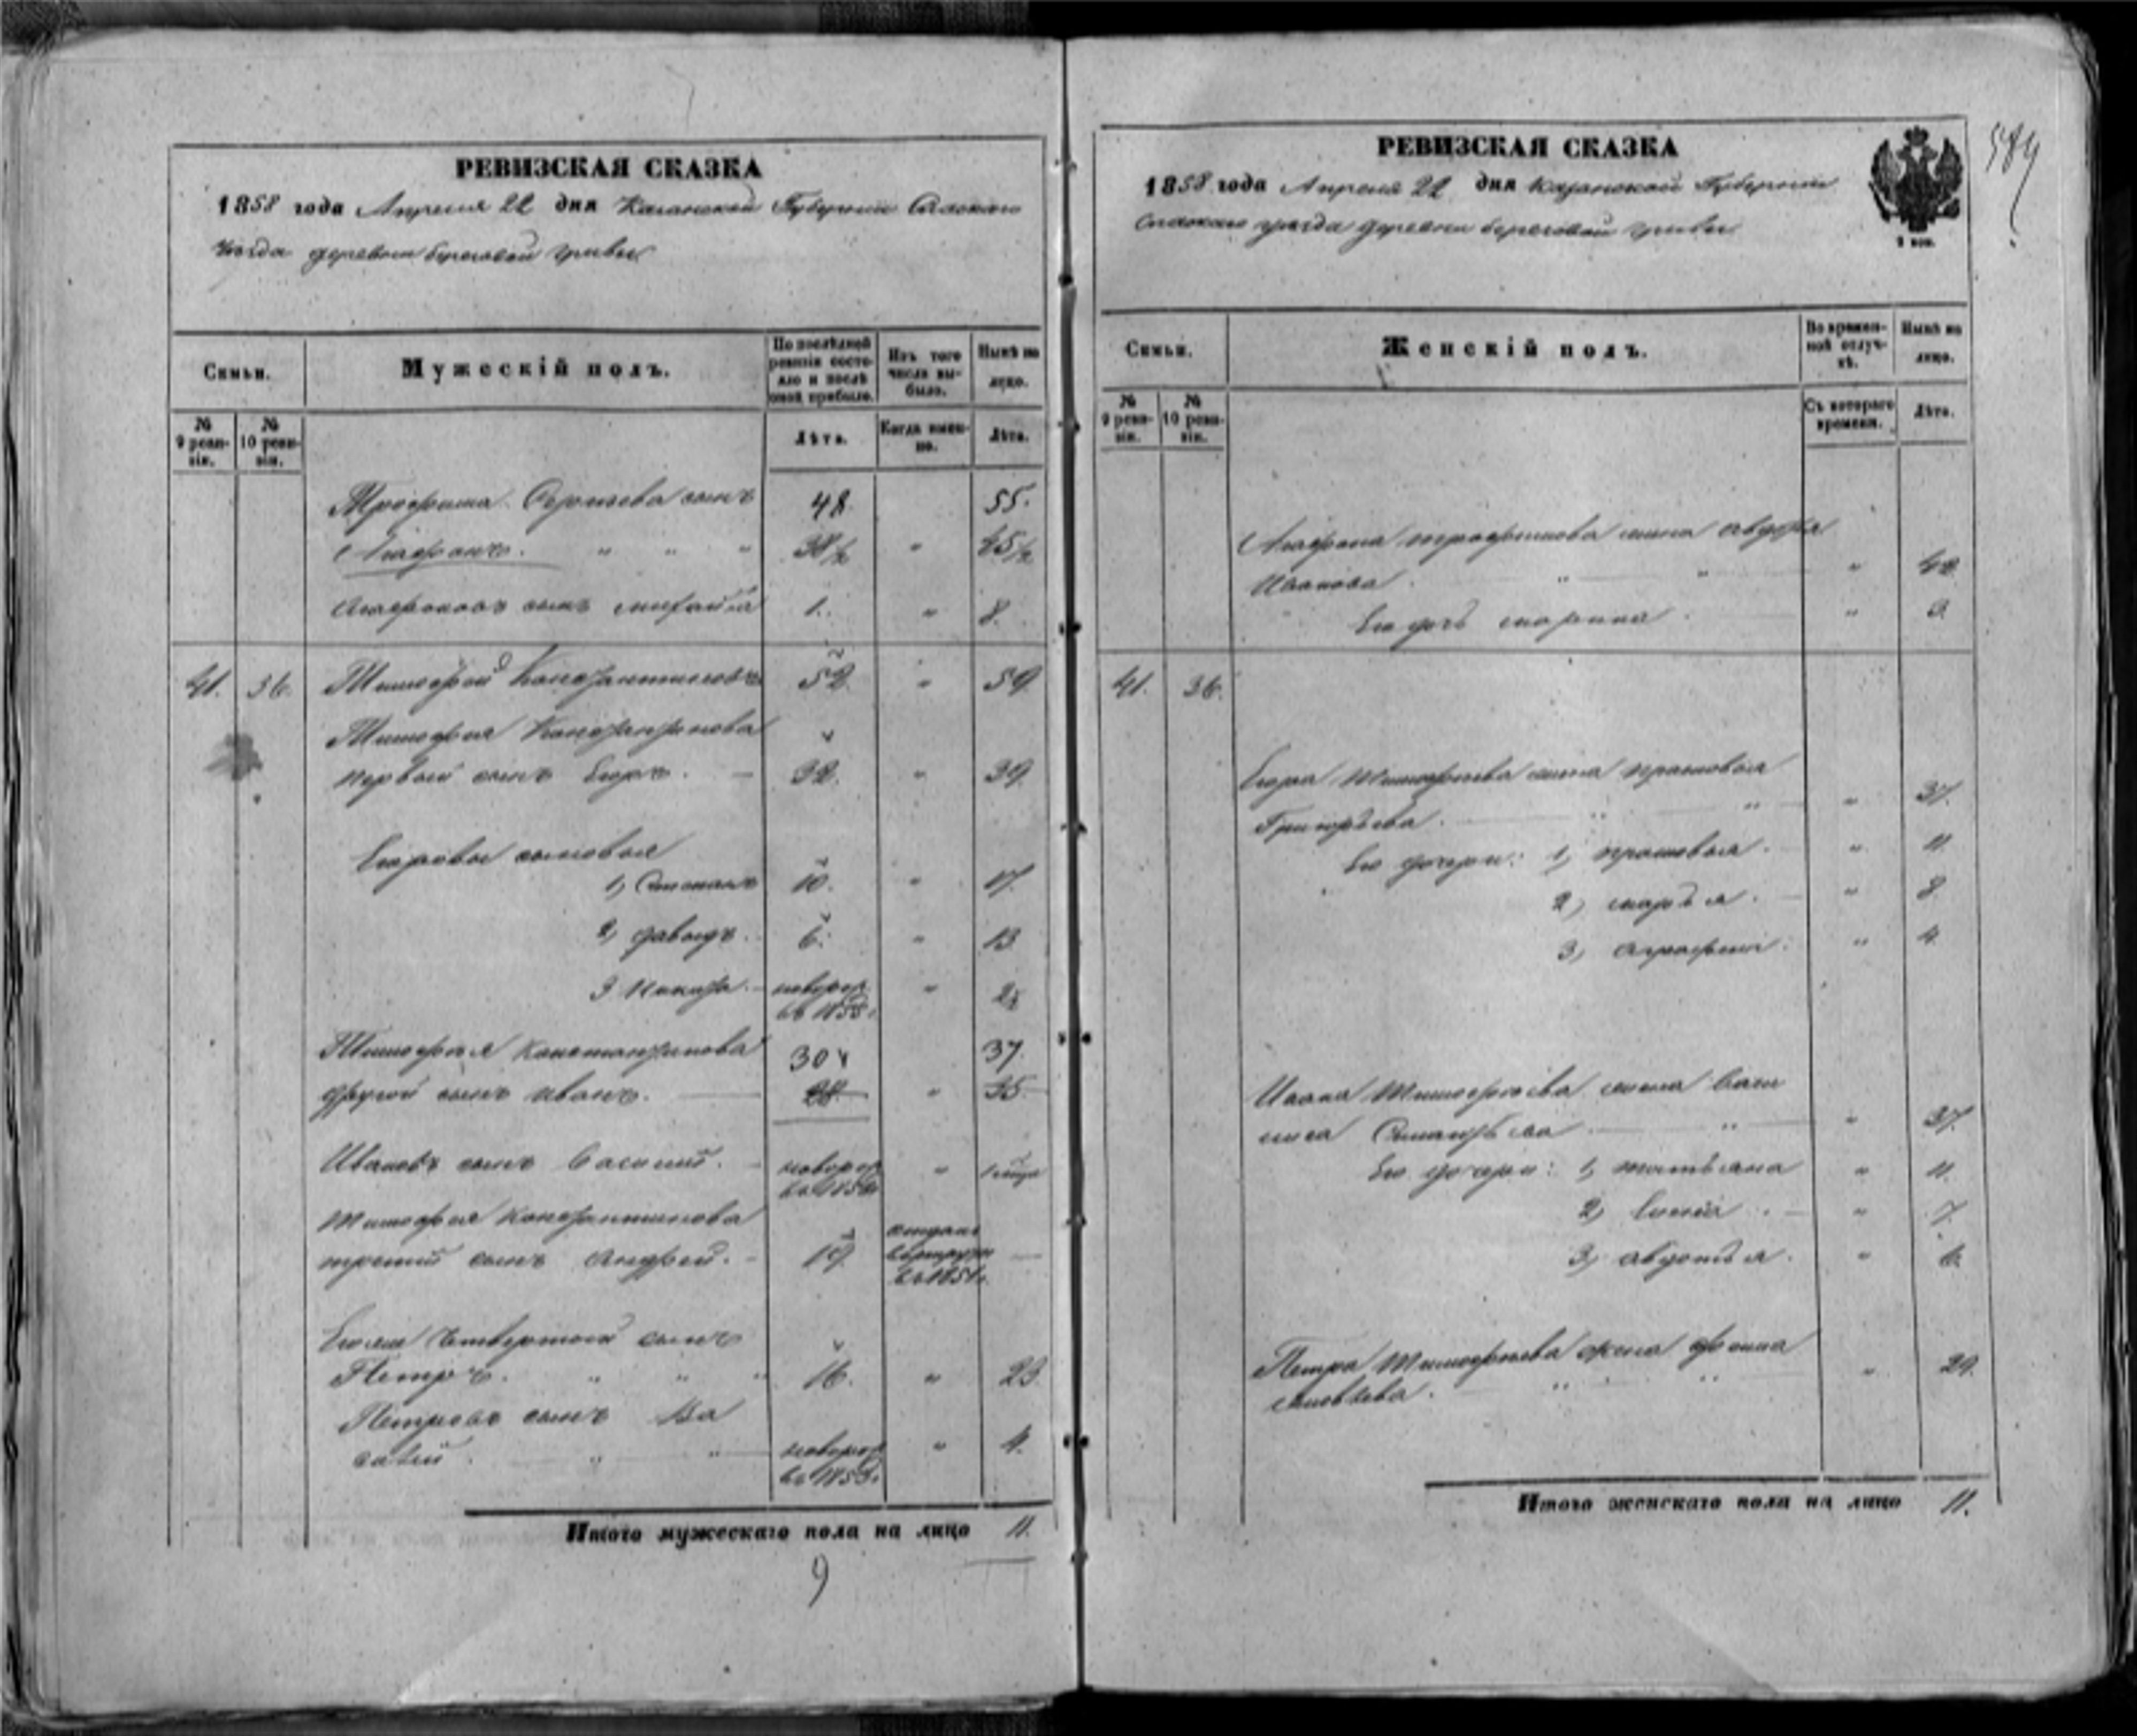 РЕВИЗСКАЯ СКАЗКА
1858 года Апреля 22 дня Казанской Губернии Спаскаго
уезда деревни береговой гривы
Семьи.
Мужескій полъ.
По послѣдней ревизіи состояло и послѣ оной прибыло.
Изъ того числа выбыло.
Нынѣ на лицо.
№ 9 ревизіи.
№ 10 ревизіи.
Лѣта.
Когда именно.
Лѣта.
Трофима сынъ 48. 55.
Агафонъ. " " " 38½ " 45½
Агафоновъ сынъ Михайла 1. " 8.
41. 36. Тимофей Константиновъ 52. " 59.
Тимофея Константинова
первый сынъ Егоръ. 32. " 39.
Егоровы сыновья
1, Степанъ 10. " 17.
2, давыдъ. 6. " 13
3 Никита. новорож. "
въ 1855г.
Тимофея Константинова 30 37.
другой сынъ иванъ. 28 " 35
Ивановъ сынъ Василий. новорож "
Тимофея Константинова
третий сынъ Андрей. 19. отданъ
въ рекруты
въ 1854г.
Егоже четвертой сынъ
Петръ. " " " 16. " 23.
Петровъ сынъ Ва
силий. " " новорож " 4.
въ 1853г.
Итого мужескаго пола на лицо 11.
9
РЕВИЗСКАЯ СКАЗКА
1858 года Апреля 22 дня Казанской Губернии
Спаскаго уезда деревни береговой гривы
2 коп.
589
Семьи.
Женскій полъ.
Во временной отлучкѣ.
Нынѣ на лицо.
№ 9 ревизіи.
№ 10 ревизіи.
Съ котораго времени.
Лѣта.
Агафона трофимова жена авдотья
Иванова. " " "
Его дочь марина. "
41. 36.
Егора Тимофеева жена прасковья
Григорьева. " " " 37.
Его дочери: 1, прасковья. " 11.
2, марья. " 8.
3, аграфена. " 4.
Ивана Тимофеева жена Васи
лиса " " 37.
Его дочери: 1, татьяна " 11.
2, " 7.
3, авдотья. " 6.
Петра Тимофеева жена
" " " 21.
Итого женскаго пола на лицо 11.